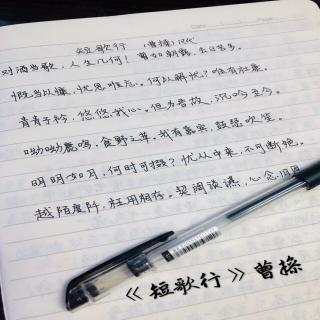 短歌行 (曹操) 汉代
对酒当歌，人生几何！譬如朝露，去日苦多。
慨当以慷，忧思难忘。何以解忧？唯有杜康。
青青子衿，悠悠我心。但为君故，沉吟至今。
呦呦鹿鸣，食野之苹。我有嘉宾，鼓瑟吹笙。
明明如月，何时可掇？忧从中来，不可断绝。
越陌度阡，枉用相存。契阔谈讌，心念旧恩
《短歌行》曹操